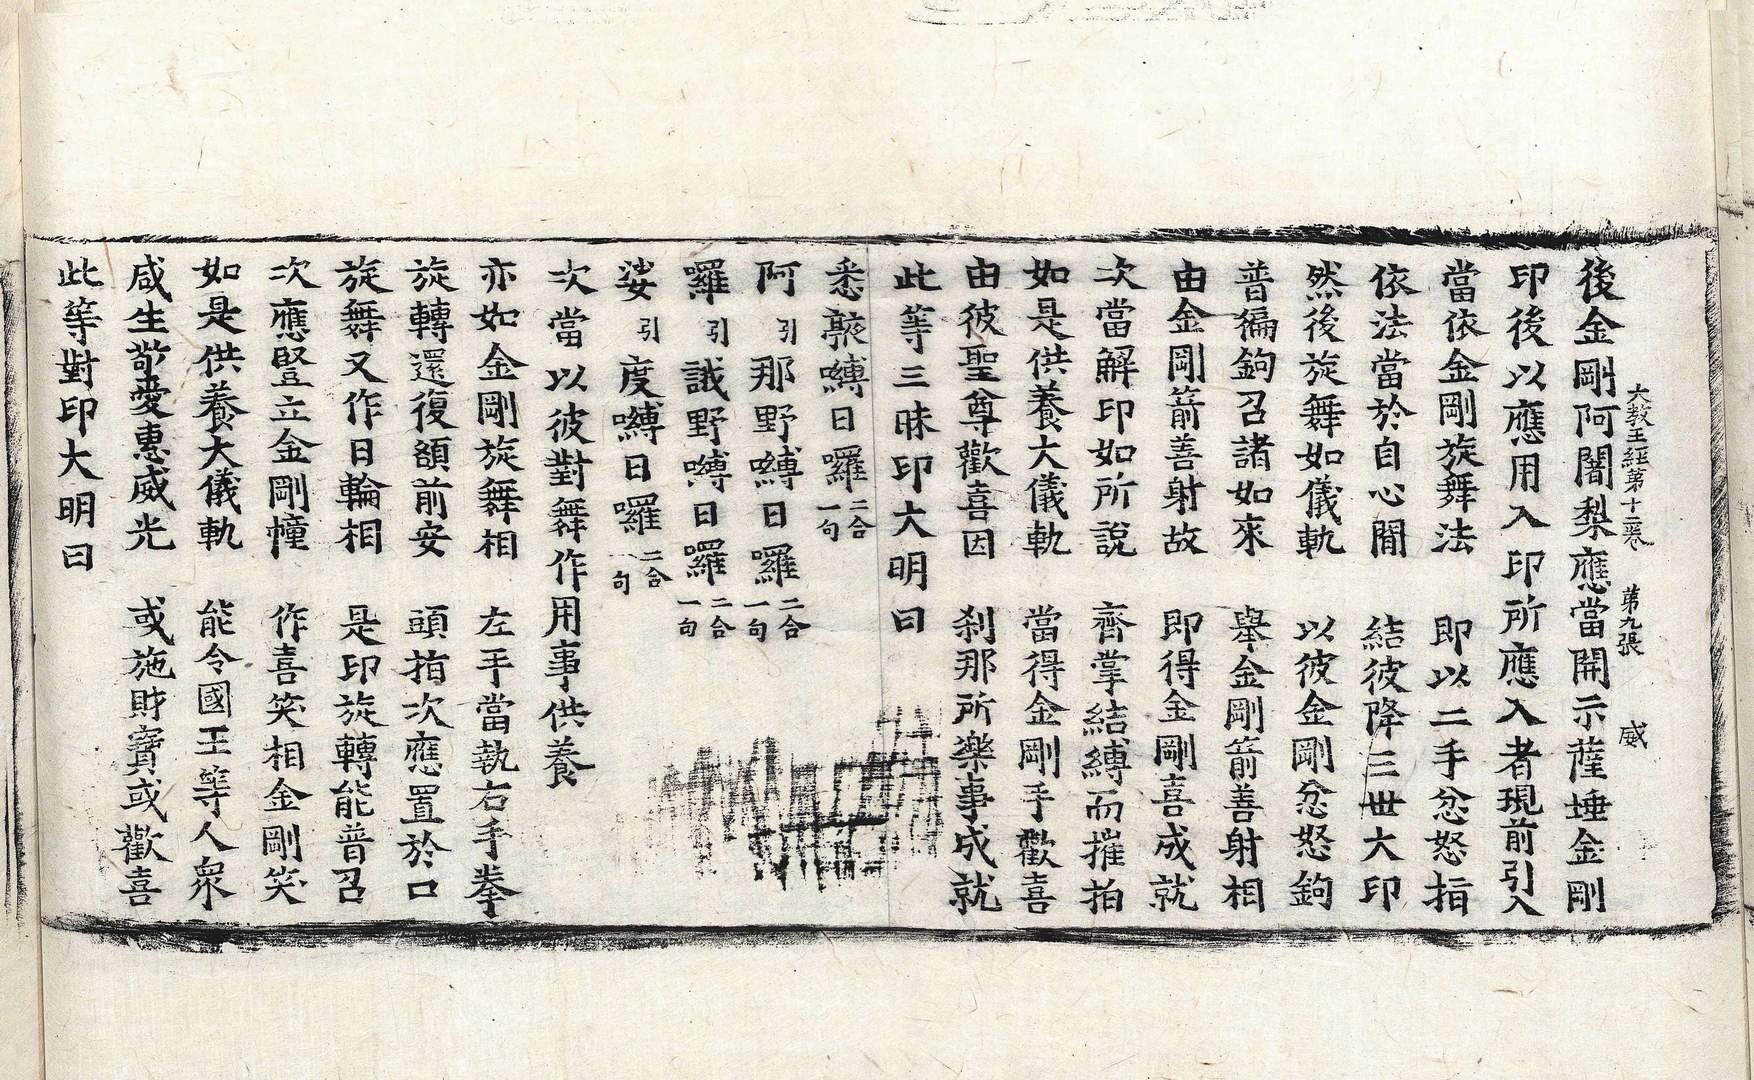 大教王經第十二卷　第九張　威
後金剛阿闍梨應當開示薩埵金剛
印後以應用入印所應入者現前引入
當依金剛旋舞法　即以二手忿怒指
依法當於自心間　結彼降三世大印
然後旋舞如儀軌　以彼金剛忿怒鉤
普徧鉤召諸如來　舉金剛箭善射相
由金剛箭善射故　即得金剛喜成就
次當解印如所說　齊掌結縛而摧拍
如是供養大儀軌　當得金剛手歡喜
由彼聖尊歡喜因　剎那所樂事成就
此等三昧印大明曰
悉𠻴嚩日囉二合一句
阿引那野嚩日囉二合一句
囉引誐野嚩日囉二合一句
娑引度嚩日囉二合一句
次當以彼對舞作用事供養
亦如金剛旋舞相　左手當執右手拳
旋轉還復額前安　頭指次應置於口
旋舞又作日輪相　是印旋轉能普召
次應豎立金剛幢　作喜笑相金剛笑
如是供養大儀軌　能令國王等人眾
咸生敬愛惠威光　或施財寶或歡喜
此等對印大明曰